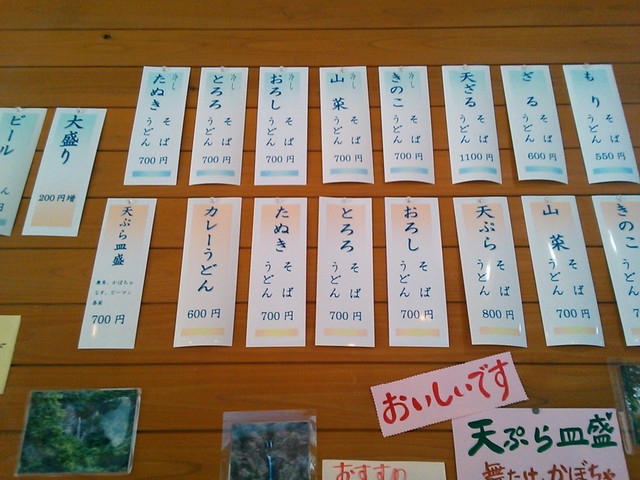 もり
そば
うどん
550円
ざる
そば
うどん
600円
天ざる
そば
うどん
1100円
冷し
きのこ
そば
うどん
700円
冷し
山菜
そば
うどん
700円
冷し
おろし
そば
うどん
700円
冷し
とろろ
そば
うどん
700円
冷し
たぬき
そば
うどん
700円
大盛り
200円増
ビール
円
きのこ
そ
うどん
山菜
そば
うどん
700円
天ぷら
そば
うどん
800円
おろし
そば
うどん
700円
とろろ
そば
うどん
700円
たぬき
そば
うどん
700円
カレーうどん
600円
天ぷら皿盛
舞茸、かぼちゃ
なす、ピーマン
春菊
700円
おいしいです
天ぷら皿盛
舞たけ、かぼちゃ
おすすめ